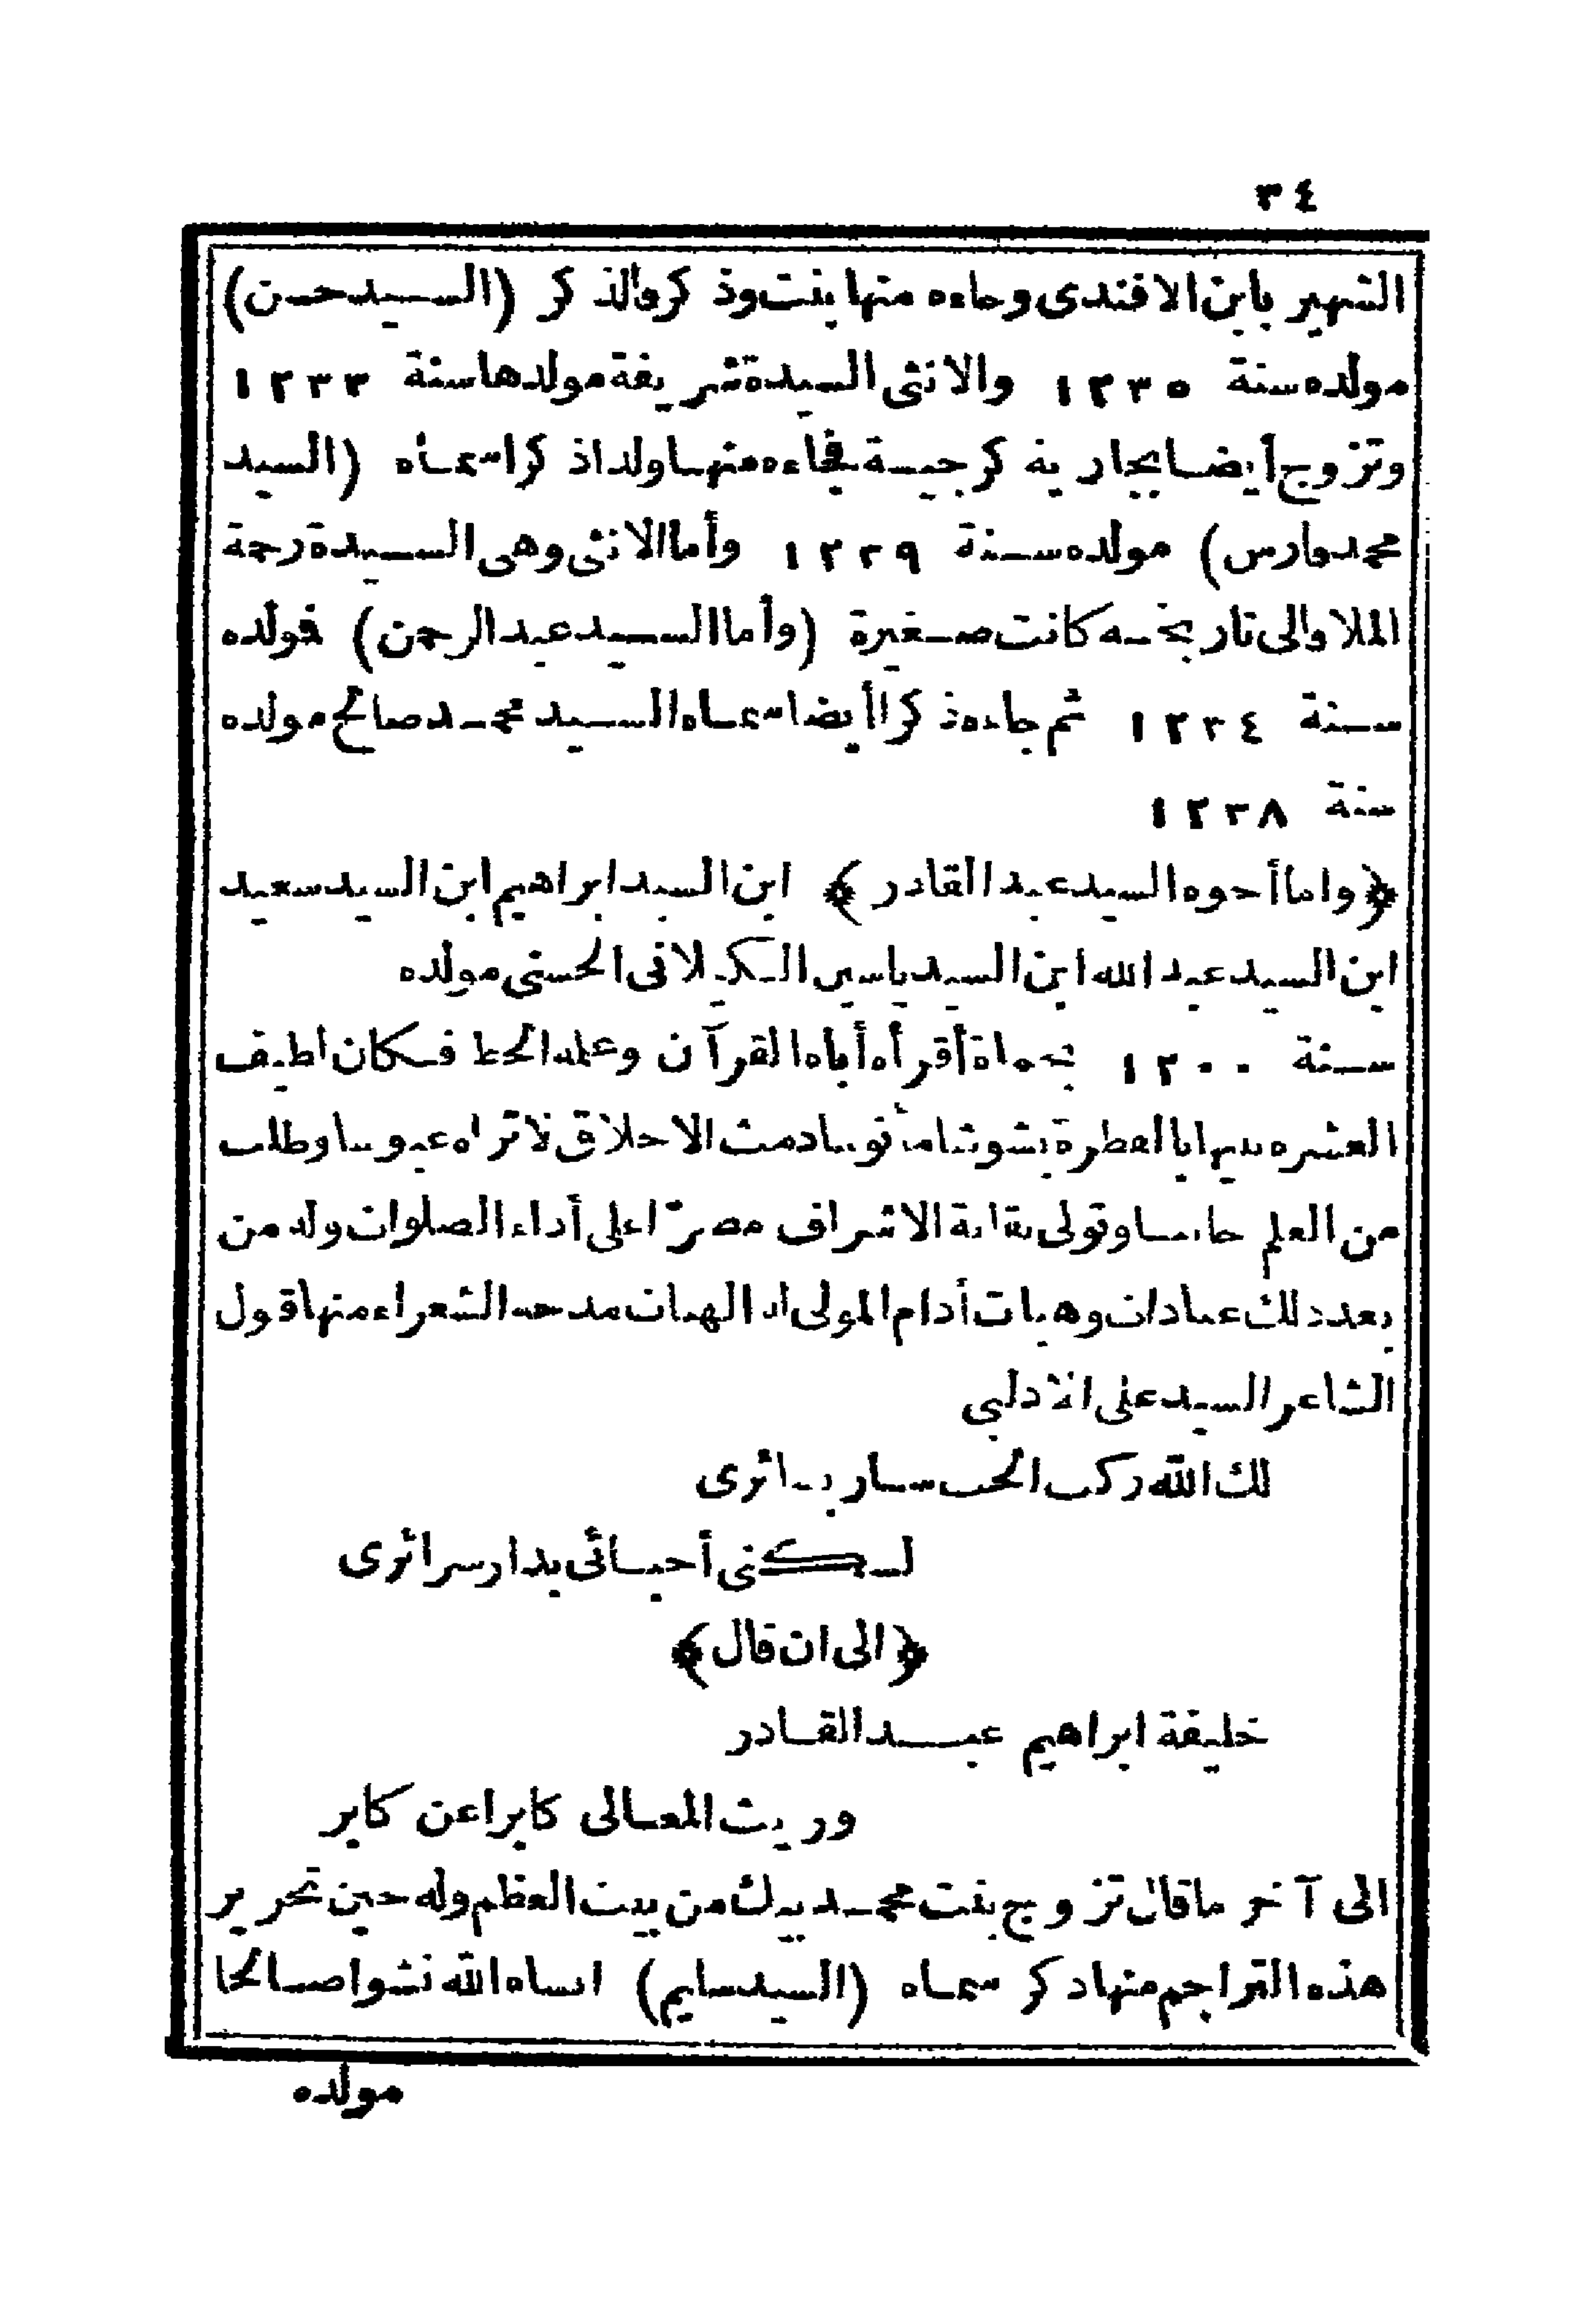 ٣٤
الشهير بابن الافندى وجاءه منها بنت وذكر فالذكر (السيد حسن)
مولده سنة ١٢٣٥ والانثى السيدة شريفة مولدها سنة ١٢٣٣
وتزوج أيضا بجارية كرجية فجاءه منها ولدا ذكرا سماه (السيد
محمد فارس) مولده سنة ١٢٣٩ وأما الانثى وهى السيدة رحمة
الملا والى تاريخه كانت صغيرة (وأما السيد عبد الرحمن) فولده
سنة ١٢٣٤ ثم جاءه ذكرا أيضا سماه السيد محمد صالح مولده
سنة ١٢٣٨
﴿واما أخوه السيد عبد القادر﴾ ابن السيد ابراهيم ابن السيد سعيد
ابن السيد عبد الله ابن السيد ياسين الكيلانى الحسنى مولده
سنة ١٢٠٠ بحماة أقرأه أباه القرآن وعلمه الخط فكان لطيف
العشره نبيها بالفطرة بشوشا مأنوسا دمث الاخلاق لا تراه عبوسا وطلب
من العلم جانبا وتولى نقابة الاشراف مصرّا على أداء الصلوات وله من
بعد ذلك عبادات وهبات أدام المولى له الهبات مدحه الشعراء منها قول
الشاعر السيد على الادلبى
لك الله ركب الحب سار بسائرى
لسكنى أحبائى بدار سرائرى
﴿الى ان قال﴾
خليفة ابراهيم عبد القادر
وريث المعالى كابرا عن كابر
الى آخر ما قال تزوج بنت محمد بيك من بيت العظم وله حين تحرير
هذه التراجم منها ذكر سماه (السيد سليم) انساه الله نشوا صالحا
مولده